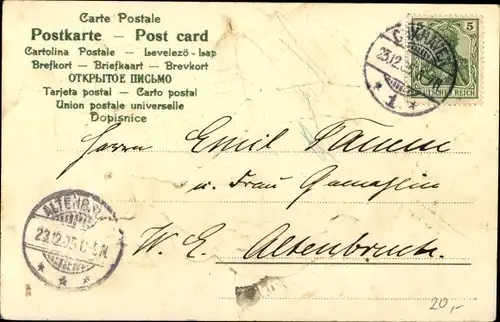 Carte Postale
Postkarte – Post card
Cartolina Postale – Levelező-Lap
Brefkort – Briefkaart – Brevkort
ОТКРЫТОЕ ПИСЬМО
Tarjeta postal – Carto postal
Union postale universelle
Dopisnice
5
DEUTSCHES REICH
CUXHAVEN
23.12.05
* 1 *
Herrn Emil Tamm
u. Frau Gemahlin
W. E. Altenbruch.
ALTENBRUCH
23.12.05
* * *
20,-